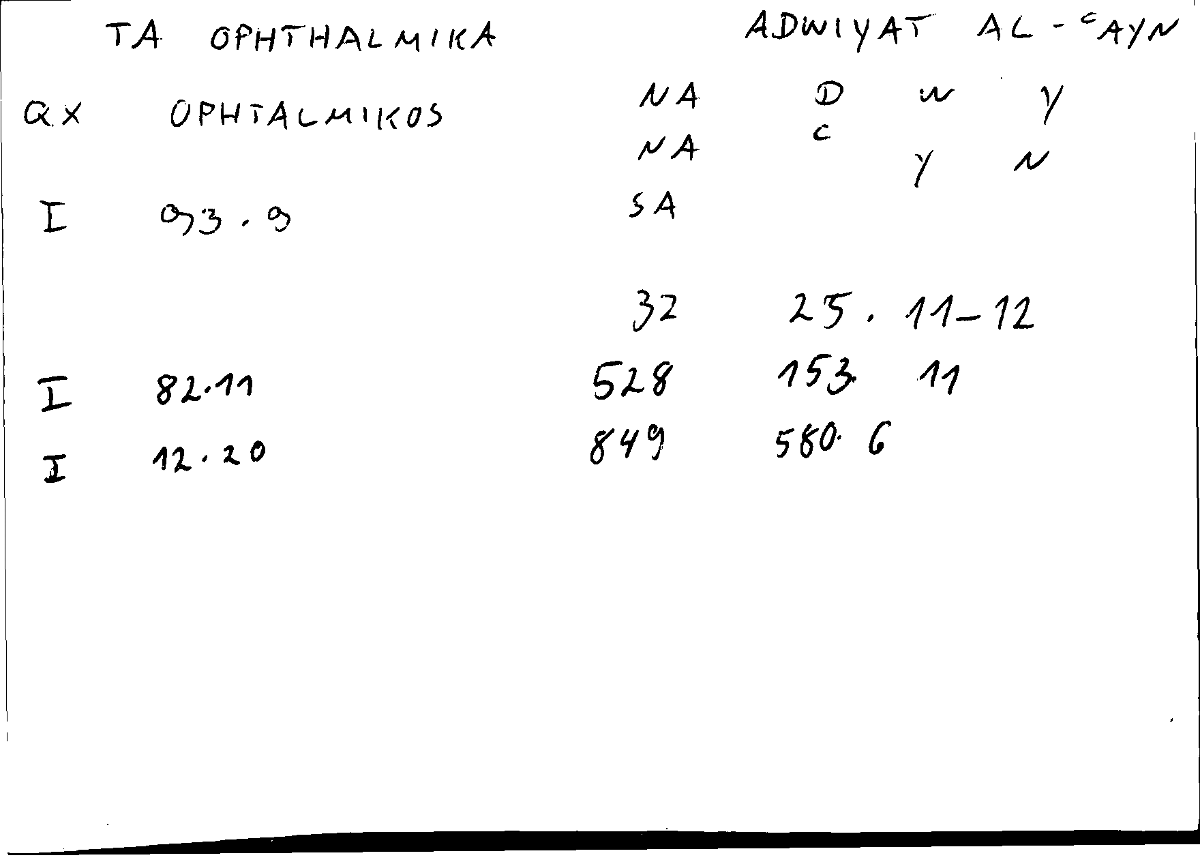 TA OPHTHALMIKA ADWIYAT AL-ᶜAYN
QX OPHTALMIKOS NA D W Y
NA C Y N
I 93.9 SA
32 25. 11-12
I 82.11 528 153. 11
I 12.20 849 580. 6